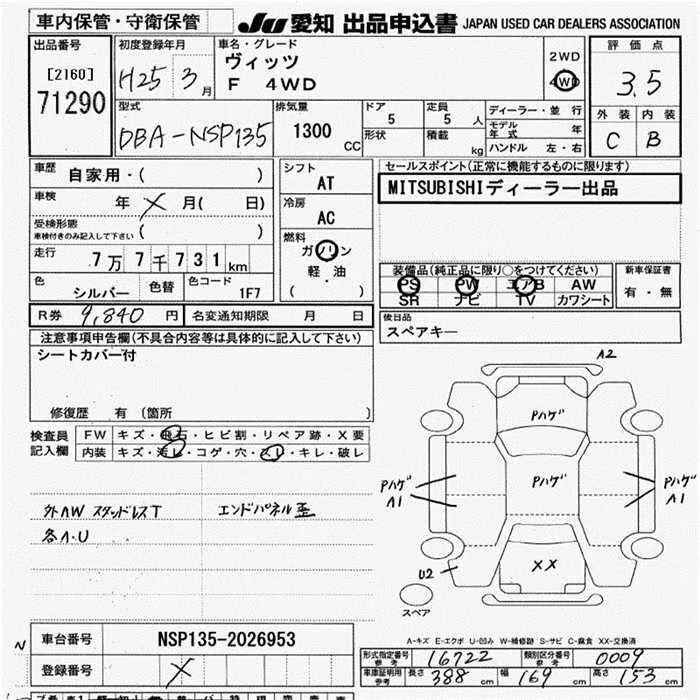 車内保管・守衛保管 JU 愛知 出品申込書 JAPAN USED CAR DEALERS ASSOCIATION
出品番号 初度登録年月 車名・グレード 評価点
[2160] H25 3月 ヴィッツ 2WD
71290 F 4WD 4WD 3.5
型式 排気量 ドア 定員 ディーラー・並行 外装 内装
DBA-NSP135 1300 CC 5 5人 モデル年式 年 C B
形状 積載 kg ハンドル 左・右
車歴 自家用・( ) シフト AT セールスポイント(正常に機能するものに限ります)
車検 年 X 月( 日) 冷房 AC MITSUBISHIディーラー出品
受検形態
車検付きのみ記入して下さい ( )
走行 7万7千731km 燃料 ガソリン
軽・油
( )
色 シルバー 色替 色コード 1F7
装備品(純正品に限り○をつけてください) 新車保証書
PS PW エアB AW 有・無
SR ナビ TV カワシート
R券 9,840円 名変通知期限 月 日
後日品
スペアキー
注意事項申告欄(不具合内容等は具体的に記入して下さい)
シートカバー付
修復歴 有 (箇所 )
検査員 FW キズ・飛石・ヒビ割・リペア跡・X要
記入欄 内装 キズ・汚レ・コゲ・穴・スレ・キレ・破レ
外AW スタッドレスT エンドパネル歪
各A・U
A2
Pハゲ
Pハゲ A1 Pハゲ Pハゲ A1
XX
U2
スペア
A-キズ E-エクボ U-凹み W-補修跡 S-サビ C-腐食 XX-交換済
車台番号 NSP135-2026953
N 登録番号 X
形式指定番号 参考 16722 類別区分番号 参考 0009
車庫証明用 参考 長さ 388cm 幅 169cm 高さ 153cm